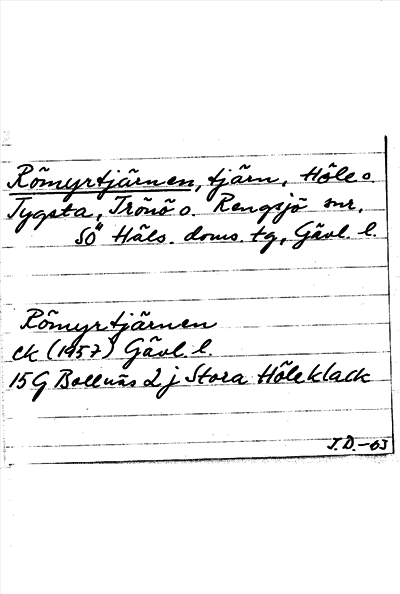 Römyrtjärnen, tjärn, Höle o.
Tygsta, Trönö o. Rengsjö snr,
SÖ Häls. doms. tg, Gävl. l.
Römyrtjärnen
ek (1957) Gävl. l.
15G Bollnäs 2j Stora Höleklack
J.D.-03